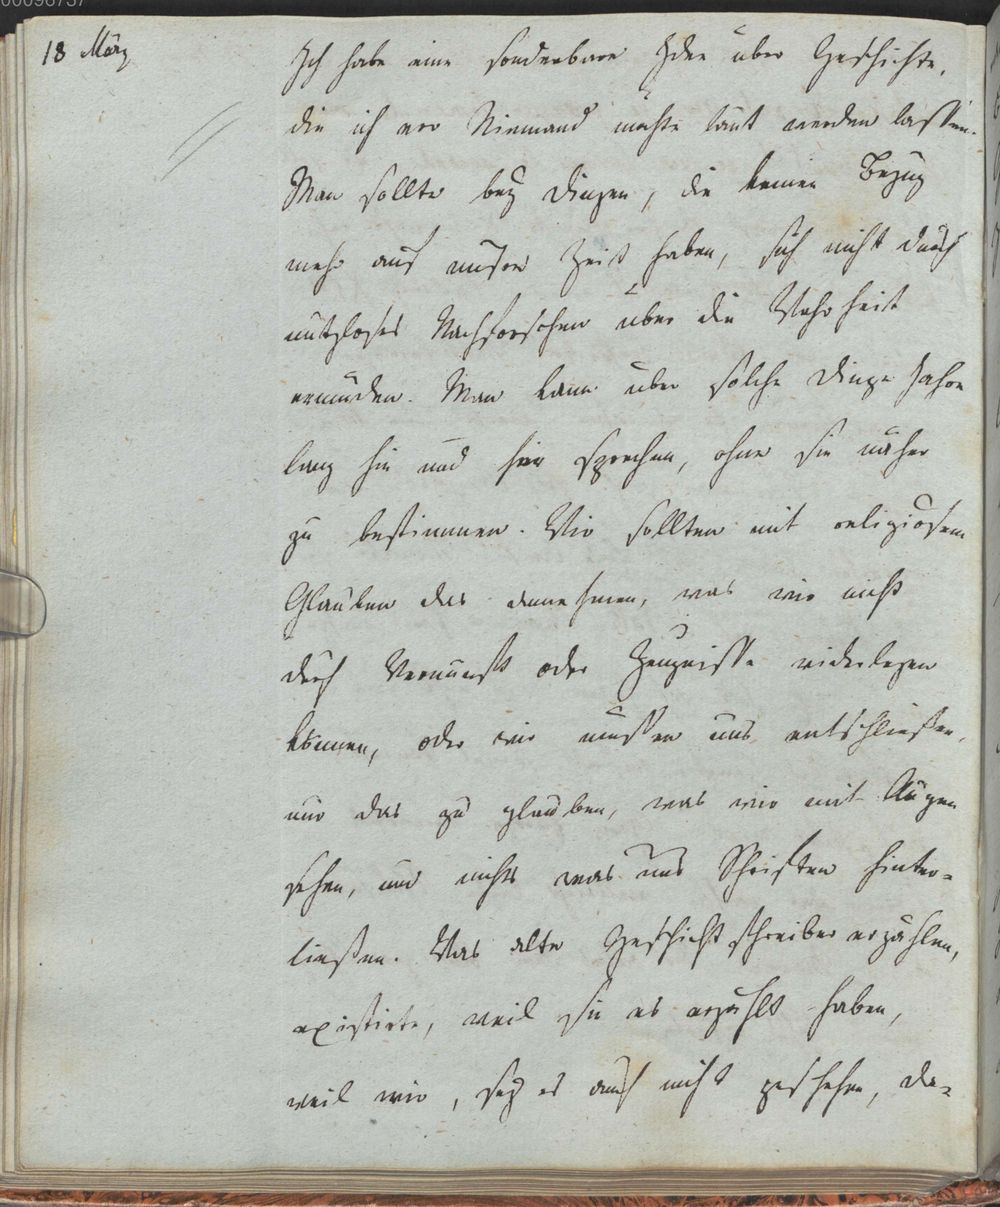 00096737
18 März
Ich habe eine sonderbare Idee über Geschichte,
die ich vor Niemand möchte laut werden lassen.
Man sollte bey Dingen, die keinen Bezug
mehr auf unsere Zeit haben, sich nicht durch
nutzloses Nachforschen über die Wahrheit
ermüden. Man kann über solche Dinge Jahre
lang hin und her sprechen, ohne sie näher
zu bestimmen. Wir sollten mit religiösem
Glauben das annehmen, was wir nicht
durch Vernunft oder Zeugnisse widerlegen
können, oder wir müssen uns entschließen,
nur das zu glauben, was wir mit Augen
sehen, und nichts was uns Schriften hinter-
ließen. Was alte Geschichtschreiber erzählen,
existirte, weil sie es erzählt haben,
weil wir, sey es auch nicht geschehen, da-